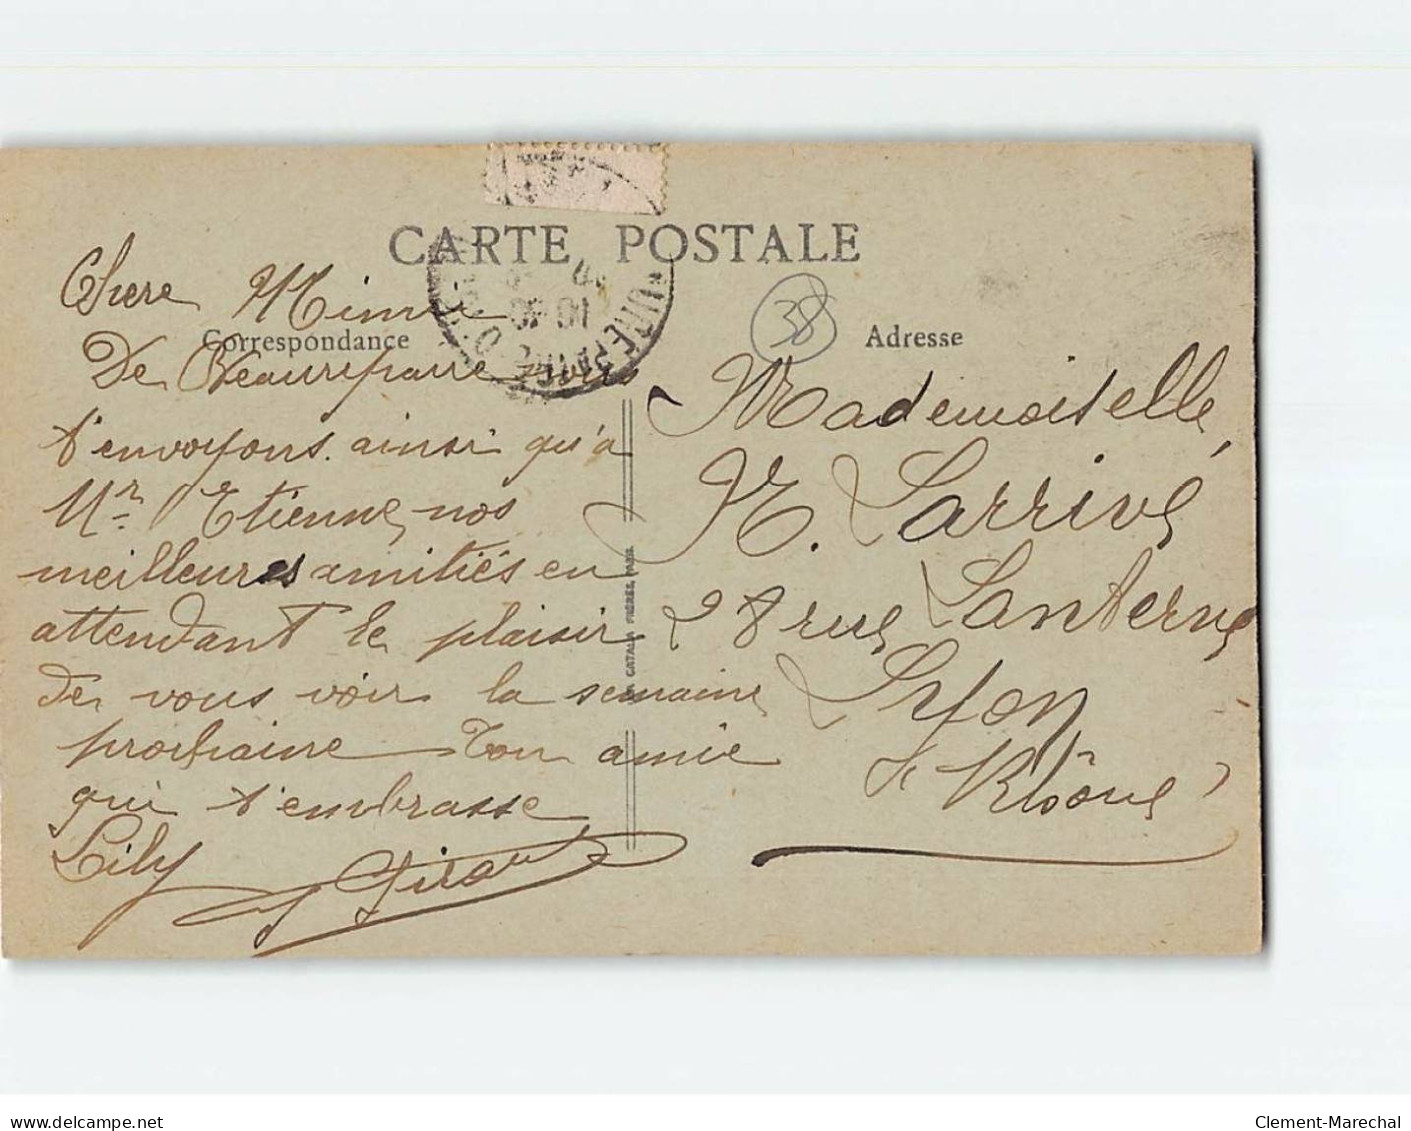 CARTE POSTALE
Correspondance
Adresse
38
Chere Mimi
De Beaurepaire
t'envoyons ainsi qu'a
Mr Etienne nos
meilleures amitiés en
attendant le plaisir
de vous voir la semaine
prochaine Ton amie
qui t'embrasse
Lily Giraud
Mademoiselle
Larrivé
28 rue Lanterne
Lyon
Rhône
CATALA FRERES, PARIS
delcampe.net
Clement-Marechal